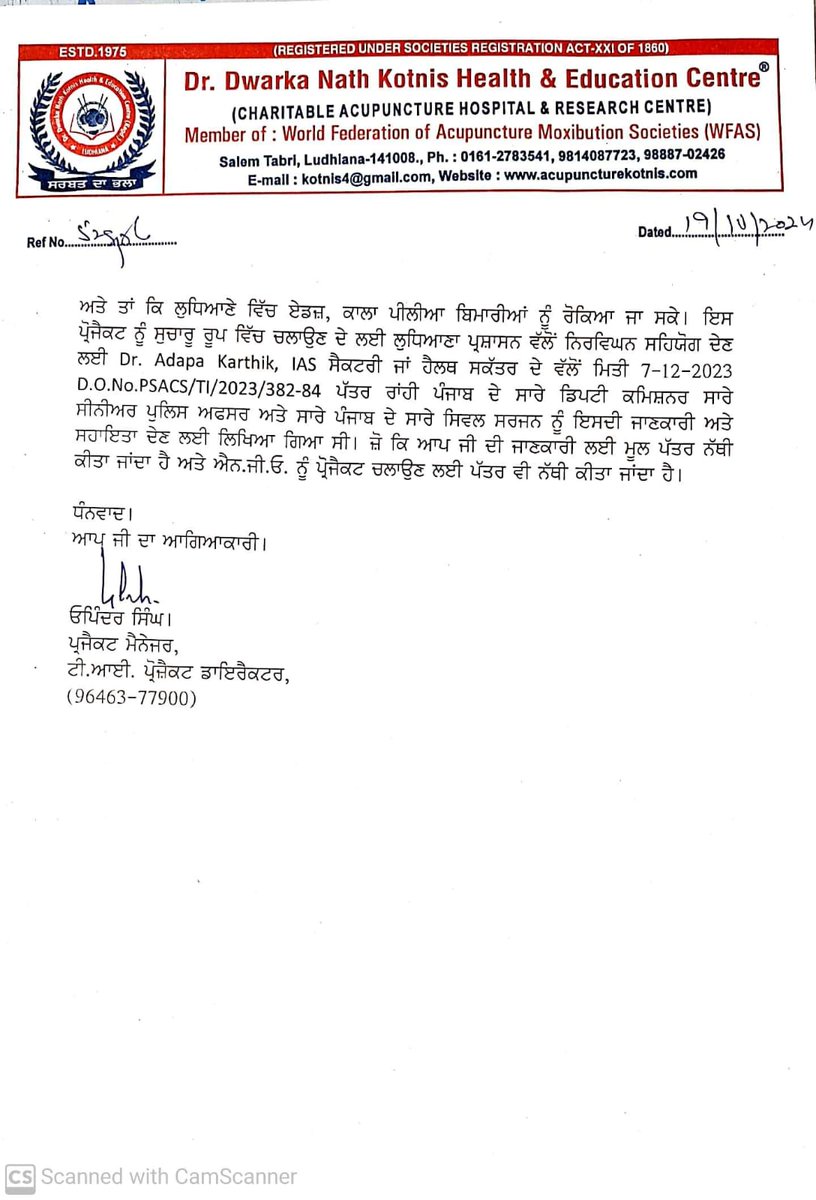 ESTD.1975
(REGISTERED UNDER SOCIETIES REGISTRATION ACT-XXI OF 1860)
Dr. Dwarka Nath Kotnis Health & Education Centre®
(CHARITABLE ACUPUNCTURE HOSPITAL & RESEARCH CENTRE)
Member of : World Federation of Acupuncture Moxibution Societies (WFAS)
Salem Tabri, Ludhiana-141008., Ph. : 0161-2783541, 9814087723, 98887-02426
E-mail : kotnis4@gmail.com, Website : www.acupuncturekotnis.com
Dr. Dwarka Nath Kotnis Health & Education Centre (Regd.)
LUDHIANA
ਸਰਬਤ ਦਾ ਭਲਾ
Ref No.
Dated 19/10/2024
ਅਤੇ ਤਾਂ ਕਿ ਲੁਧਿਆਣੇ ਵਿੱਚ ਏਡਜ਼, ਕਾਲਾ ਪੀਲੀਆ ਬਿਮਾਰੀਆਂ ਨੂੰ ਰੋਕਿਆ ਜਾ ਸਕੇ। ਇਸ
ਪ੍ਰੋਜੈਕਟ ਨੂੰ ਸੁਚਾਰੂ ਰੂਪ ਵਿੱਚ ਚਲਾਉਣ ਦੇ ਲਈ ਲੁਧਿਆਣਾ ਪ੍ਰਸ਼ਾਸਨ ਵੱਲੋਂ ਨਿਰਵਿਘਨ ਸਹਿਯੋਗ ਦੇਣ
ਲਈ Dr. Adapa Karthik, IAS ਸੈਕਟਰੀ ਜਾਂ ਹੈਲਥ ਸਕੱਤਰ ਦੇ ਵੱਲੋਂ ਮਿਤੀ 7-12-2023
D.O.No.PSACS/TI/2023/382-84 ਪੱਤਰ ਰਾਂਹੀ ਪੰਜਾਬ ਦੇ ਸਾਰੇ ਡਿਪਟੀ ਕਮਿਸ਼ਨਰ ਸਾਰੇ
ਸੀਨੀਅਰ ਪੁਲਿਸ ਅਫਸਰ ਅਤੇ ਸਾਰੇ ਪੰਜਾਬ ਦੇ ਸਾਰੇ ਸਿਵਲ ਸਰਜਨ ਨੂੰ ਇਸਦੀ ਜਾਣਕਾਰੀ ਅਤੇ
ਸਹਾਇਤਾ ਦੇਣ ਲਈ ਲਿਖਿਆ ਗਿਆ ਸੀ। ਜ਼ੋ ਕਿ ਆਪ ਜੀ ਦੀ ਜਾਣਕਾਰੀ ਲਈ ਮੂਲ ਪੱਤਰ ਨੱਥੀ
ਕੀਤਾ ਜਾਂਦਾ ਹੈ ਅਤੇ ਐਨ.ਜੀ.ਓ. ਨੂੰ ਪ੍ਰੋਜੈਕਟ ਚਲਾਉਣ ਲਈ ਪੱਤਰ ਵੀ ਨੱਥੀ ਕੀਤਾ ਜਾਂਦਾ ਹੈ।
ਧੰਨਵਾਦ।
ਆਪ ਜੀ ਦਾ ਆਗਿਆਕਾਰੀ।
ਓਪਿੰਦਰ ਸਿੰਘ।
ਪ੍ਰਜੈਕਟ ਮੈਨੇਜਰ,
ਟੀ.ਆਈ. ਪ੍ਰੋਜ਼ੈਕਟ ਡਾਇਰੈਕਟਰ,
(96463-77900)
CS Scanned with CamScanner